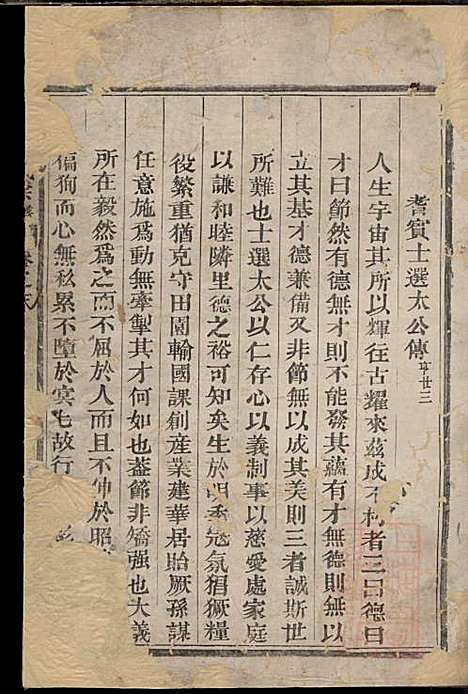 耆賓士選太公傳 字廿三
人生宇宙其所以輝往古耀來茲成不朽者三曰德曰
才曰節然有德無才則不能發其蘊有才無德則無以
立其基才德兼備又非節無以成其美則三者誠斯世
所難也士選太公以仁存心以義制事以慈愛處家庭
以謙和睦隣里德之裕可知矣生於明季冦氛猖獗糧
役繁重猶克守田園輸國課創産業建華居貽厥孫謀
任意施爲動無牽掣其才何如也葢節非矯强也大義
所在毅然爲之而不屈於人而且不伸於昭
偏狥而心無私累不墮於冥冥故行